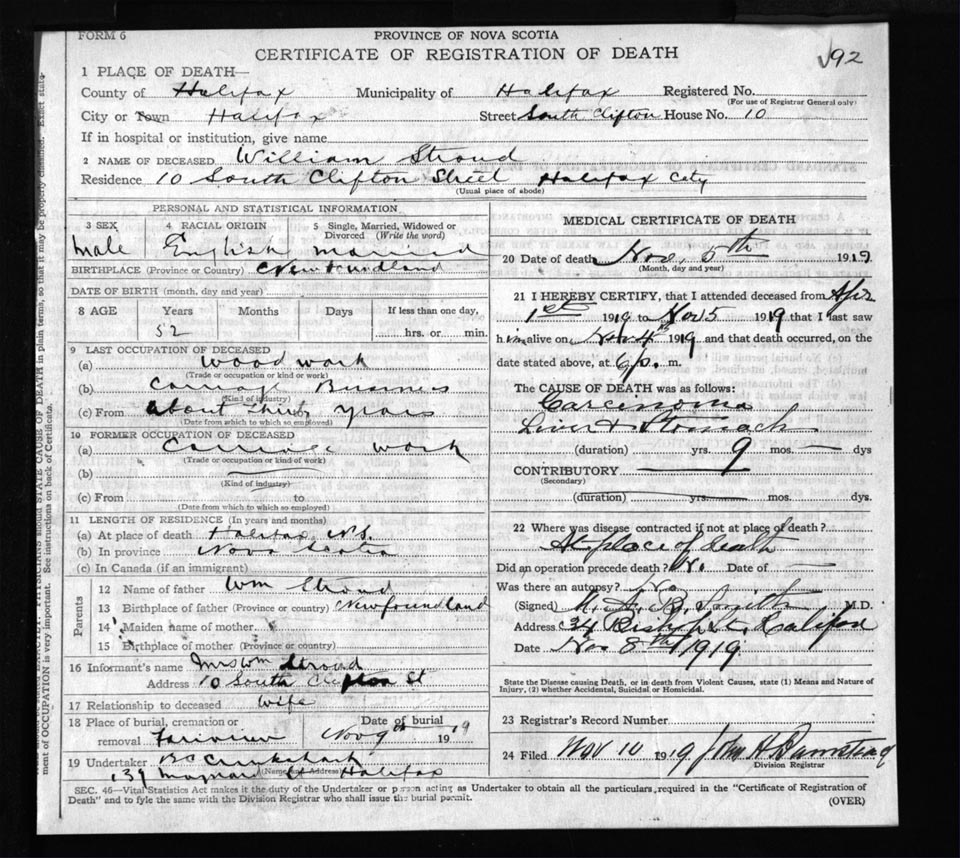 FORM 6
PROVINCE OF NOVA SCOTIA
CERTIFICATE OF REGISTRATION OF DEATH
92
1 PLACE OF DEATH—
County of Halifax Municipality of Halifax Registered No.
(For use of Registrar General only)
City or Town Halifax Street South Clifton House No. 10
If in hospital or institution, give name
2 NAME OF DECEASED William Stroud
Residence 10 South Clifton Street Halifax City
(Usual place of abode)
PERSONAL AND STATISTICAL INFORMATION
3 SEX 4 RACIAL ORIGIN 5 Single, Married, Widowed or Divorced (Write the word)
Male English Married
BIRTHPLACE (Province or Country) Newfoundland
DATE OF BIRTH (month, day and year)
8 AGE Years Months Days If less than one day,
52 hrs. or min.
9 LAST OCCUPATION OF DECEASED
(a) Wood work
(Trade or occupation or kind or work)
(b) Carriage Business
(Kind of industry)
(c) From About thirty years
(Date from which to which so employed)
10 FORMER OCCUPATION OF DECEASED
(a) Carriage work
(Trade or occupation or kind of work)
(b)
(Kind of industry)
(c) From to
(Date from which to which so employed)
11 LENGTH OF RESIDENCE (In years and months)
(a) At place of death Halifax N.S.
(b) In province Nova Scotia
(c) In Canada (if an immigrant)
Parents
12 Name of father Wm Stroud
13 Birthplace of father (Province or country) Newfoundland
14 Maiden name of mother
15 Birthplace of mother (Province or country)
16 Informant's name Mrs Wm Stroud
Address 10 South Clifton St
17 Relationship to deceased Wife
18 Place of burial, cremation or removal Fairview Date of burial Nov 9th 1919
19 Undertaker
(Name and Address)
139 Maynard St Halifax
MEDICAL CERTIFICATE OF DEATH
20 Date of death Nov. 5th 1919
(Month, day and year)
21 I HEREBY CERTIFY, that I attended deceased from Apr
1st 1919 to Nov 5 1919 that I last saw
him alive on Nov 4th 1919 and that death occurred, on the
date stated above, at 6 p. m.
The CAUSE OF DEATH was as follows:
Carcinoma
Liver & Stomach
(duration) yrs. 9 mos. — dys
CONTRIBUTORY
(Secondary)
(duration) yrs. mos. dys.
22 Where was disease contracted if not at place of death?
At place of death
Did an operation precede death? No. Date of —
Was there an autopsy? No
(Signed) M. A. B. Smith M.D.
Address 24 Bishop St. Halifax
Date Nov 8th 1919
State the Disease causing Death, or in death from Violent Causes, state (1) Means and Nature of
Injury, (2) whether Accidental, Suicidal or Homicidal.
23 Registrar's Record Number
24 Filed Nov 10 1919 John H
Division Registrar
SEC. 46—Vital Statistics Act makes it the duty of the Undertaker or person acting as Undertaker to obtain all the particulars required in the "Certificate of Registration of
Death" and to fyle the same with the Division Registrar who shall issue the burial permit.
(OVER)
PHYSICIANS should STATE CAUSE OF DEATH in plain terms, so that it may be properly classified. Exact state-
ment of OCCUPATION is very important. See instructions on back of Certificate.